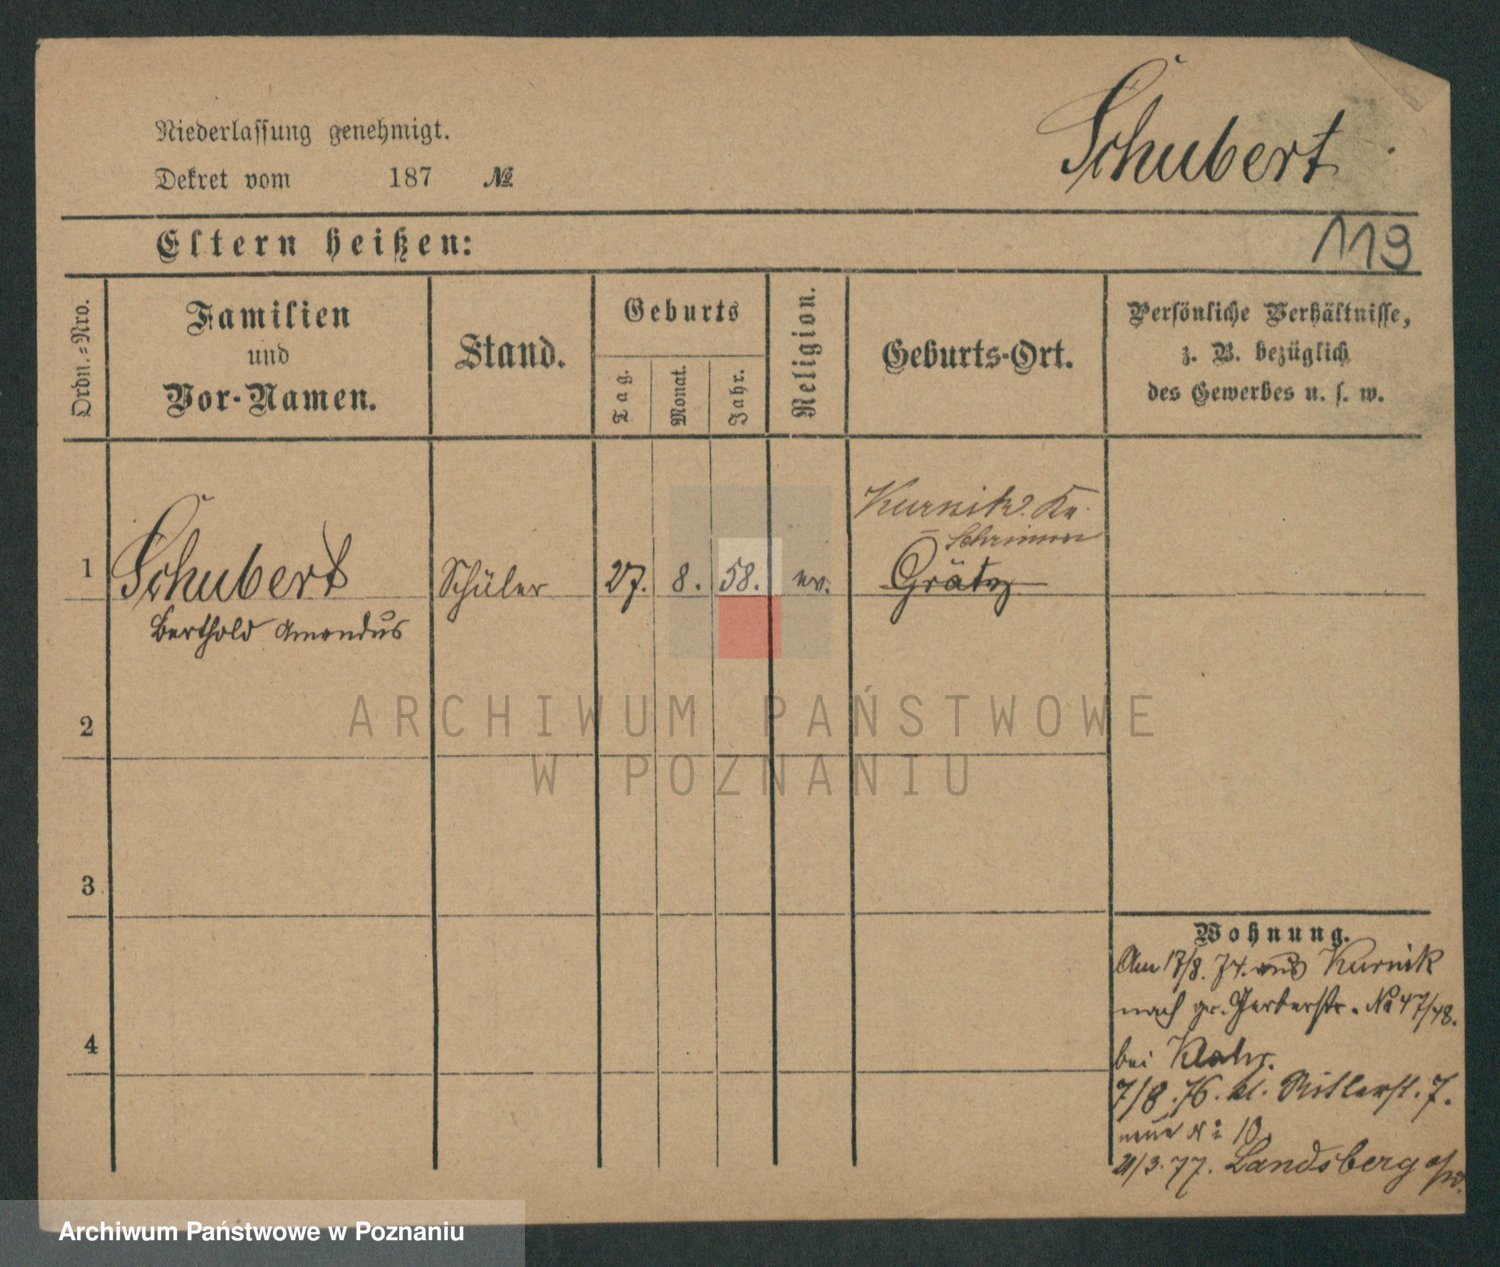 Schubert.
Niederlassung genehmigt.
Dekret vom 187 №
119
Eltern heißen:
Ordn.=Nro.
Familien
und
Vor-Namen.
Stand.
Geburts
Tag.
Monat.
Jahr.
Religion.
Geburts-Ort.
Persönliche Verhältnisse,
z. B. bezüglich
des Gewerbes u. s. w.
Kurnik Kr.
Schrimm
1 Schubert Schüler 27. 8. 58. ev. Grätz
Berthold Amandus
2
3
4
Wohnung.
Am 17/8. 74. aus Kurnik
nach gr. Gerberstr. No 47/48.
bei
7/8. 76. kl. Ritterst. 7.
neue No 10
21/3. 77. Landsberg
ARCHIWUM PAŃSTWOWE
W POZNANIU
Archiwum Państwowe w Poznaniu